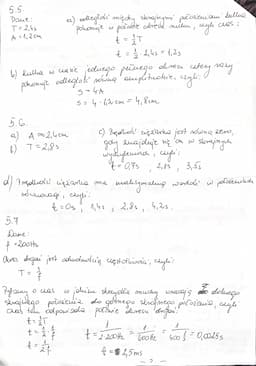 5.5
Dane:
T = 2,4s
A = 1,2cm
a) odległość między skrajnymi położeniami kulka
pokonuje w połowie okresu ruchu, czyli czas:
t = 1/2 T
t = 1/2 · 2,4s = 1,2s
b) kulka w czasie jednego pełnego okresu cztery razy
pokonuje odległość równą amplitudzie, czyli:
s = 4A
s = 4 · 1,2cm = 4,8cm
5.6
a) A = 2,4cm
b) T = 2,8s
c) Prędkość ciężarka jest równa zero,
gdy znajduje się on w skrajnym
wychyleniu, czyli:
t = 0,7s , 2,1s , 3,5s
d) Prędkość ciężarka ma maksymalną wartość w położeniach
równowagi, czyli:
t = 0s , 1,4s , 2,8s , 4,2s.
5.7
Dane:
f = 200Hz
Okres drgań jest odwrotnością częstotliwości, czyli:
T = 1/f
Pytamy o czas w jakim skrzydła muchy wracają z dolnego
skrajnego położenia do górnego skrajnego położenia, czyli
czas ten odpowiada połowie okresu drgań:
t = 1/2 T
t = 1/2 · 1/f
t = 1/2f
t = 1/2·200Hz = 1/400Hz = 1/400 s = 0,0025s
t = 2,5ms